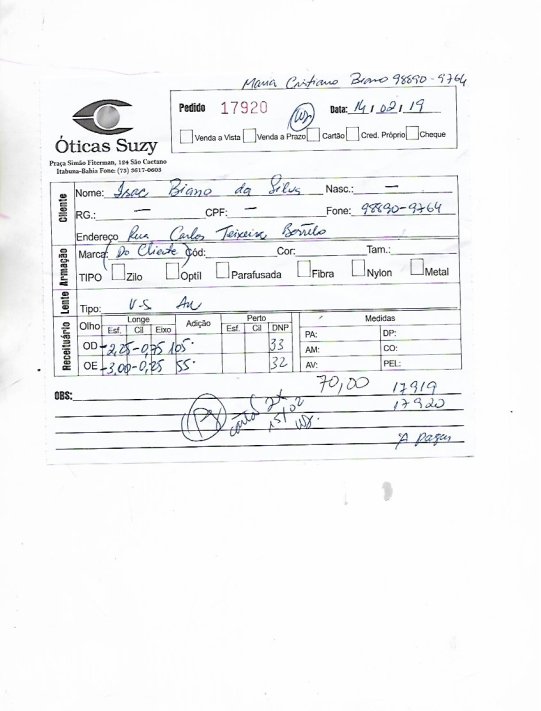 Maria Cristiano Biano 98890-9764
Pedido 17920 Data: 14/02/19
Venda a Vista Venda a Prazo Cartão Cred. Próprio Cheque
Óticas Suzy
Praça Simão Fiterman, 124 São Caetano
Itabuna-Bahia Fone: (73) 3617-0603
Cliente
Nome: Isac Biano da Silva Nasc.: —
RG.: — CPF: — Fone: 98890-9764
Endereço Rua Carlos Teixeira
Armação
Marca: Do Cliente Cód: Cor: Tam.:
TIPO Zilo Optil Parafusada Fibra Nylon Metal
Lente
Tipo: V.S
Receituário
Olho Longe Adição Perto Medidas
Esf. Cil Eixo Esf. Cil DNP
OD -2,25 -0,75 105° 33 PA: DP:
AM: CO:
OE -3,00 -0,25 55° 32 AV: PEL:
OBS: 70,00 17919
17920
Pg cartão 2x
15/02
A pagar